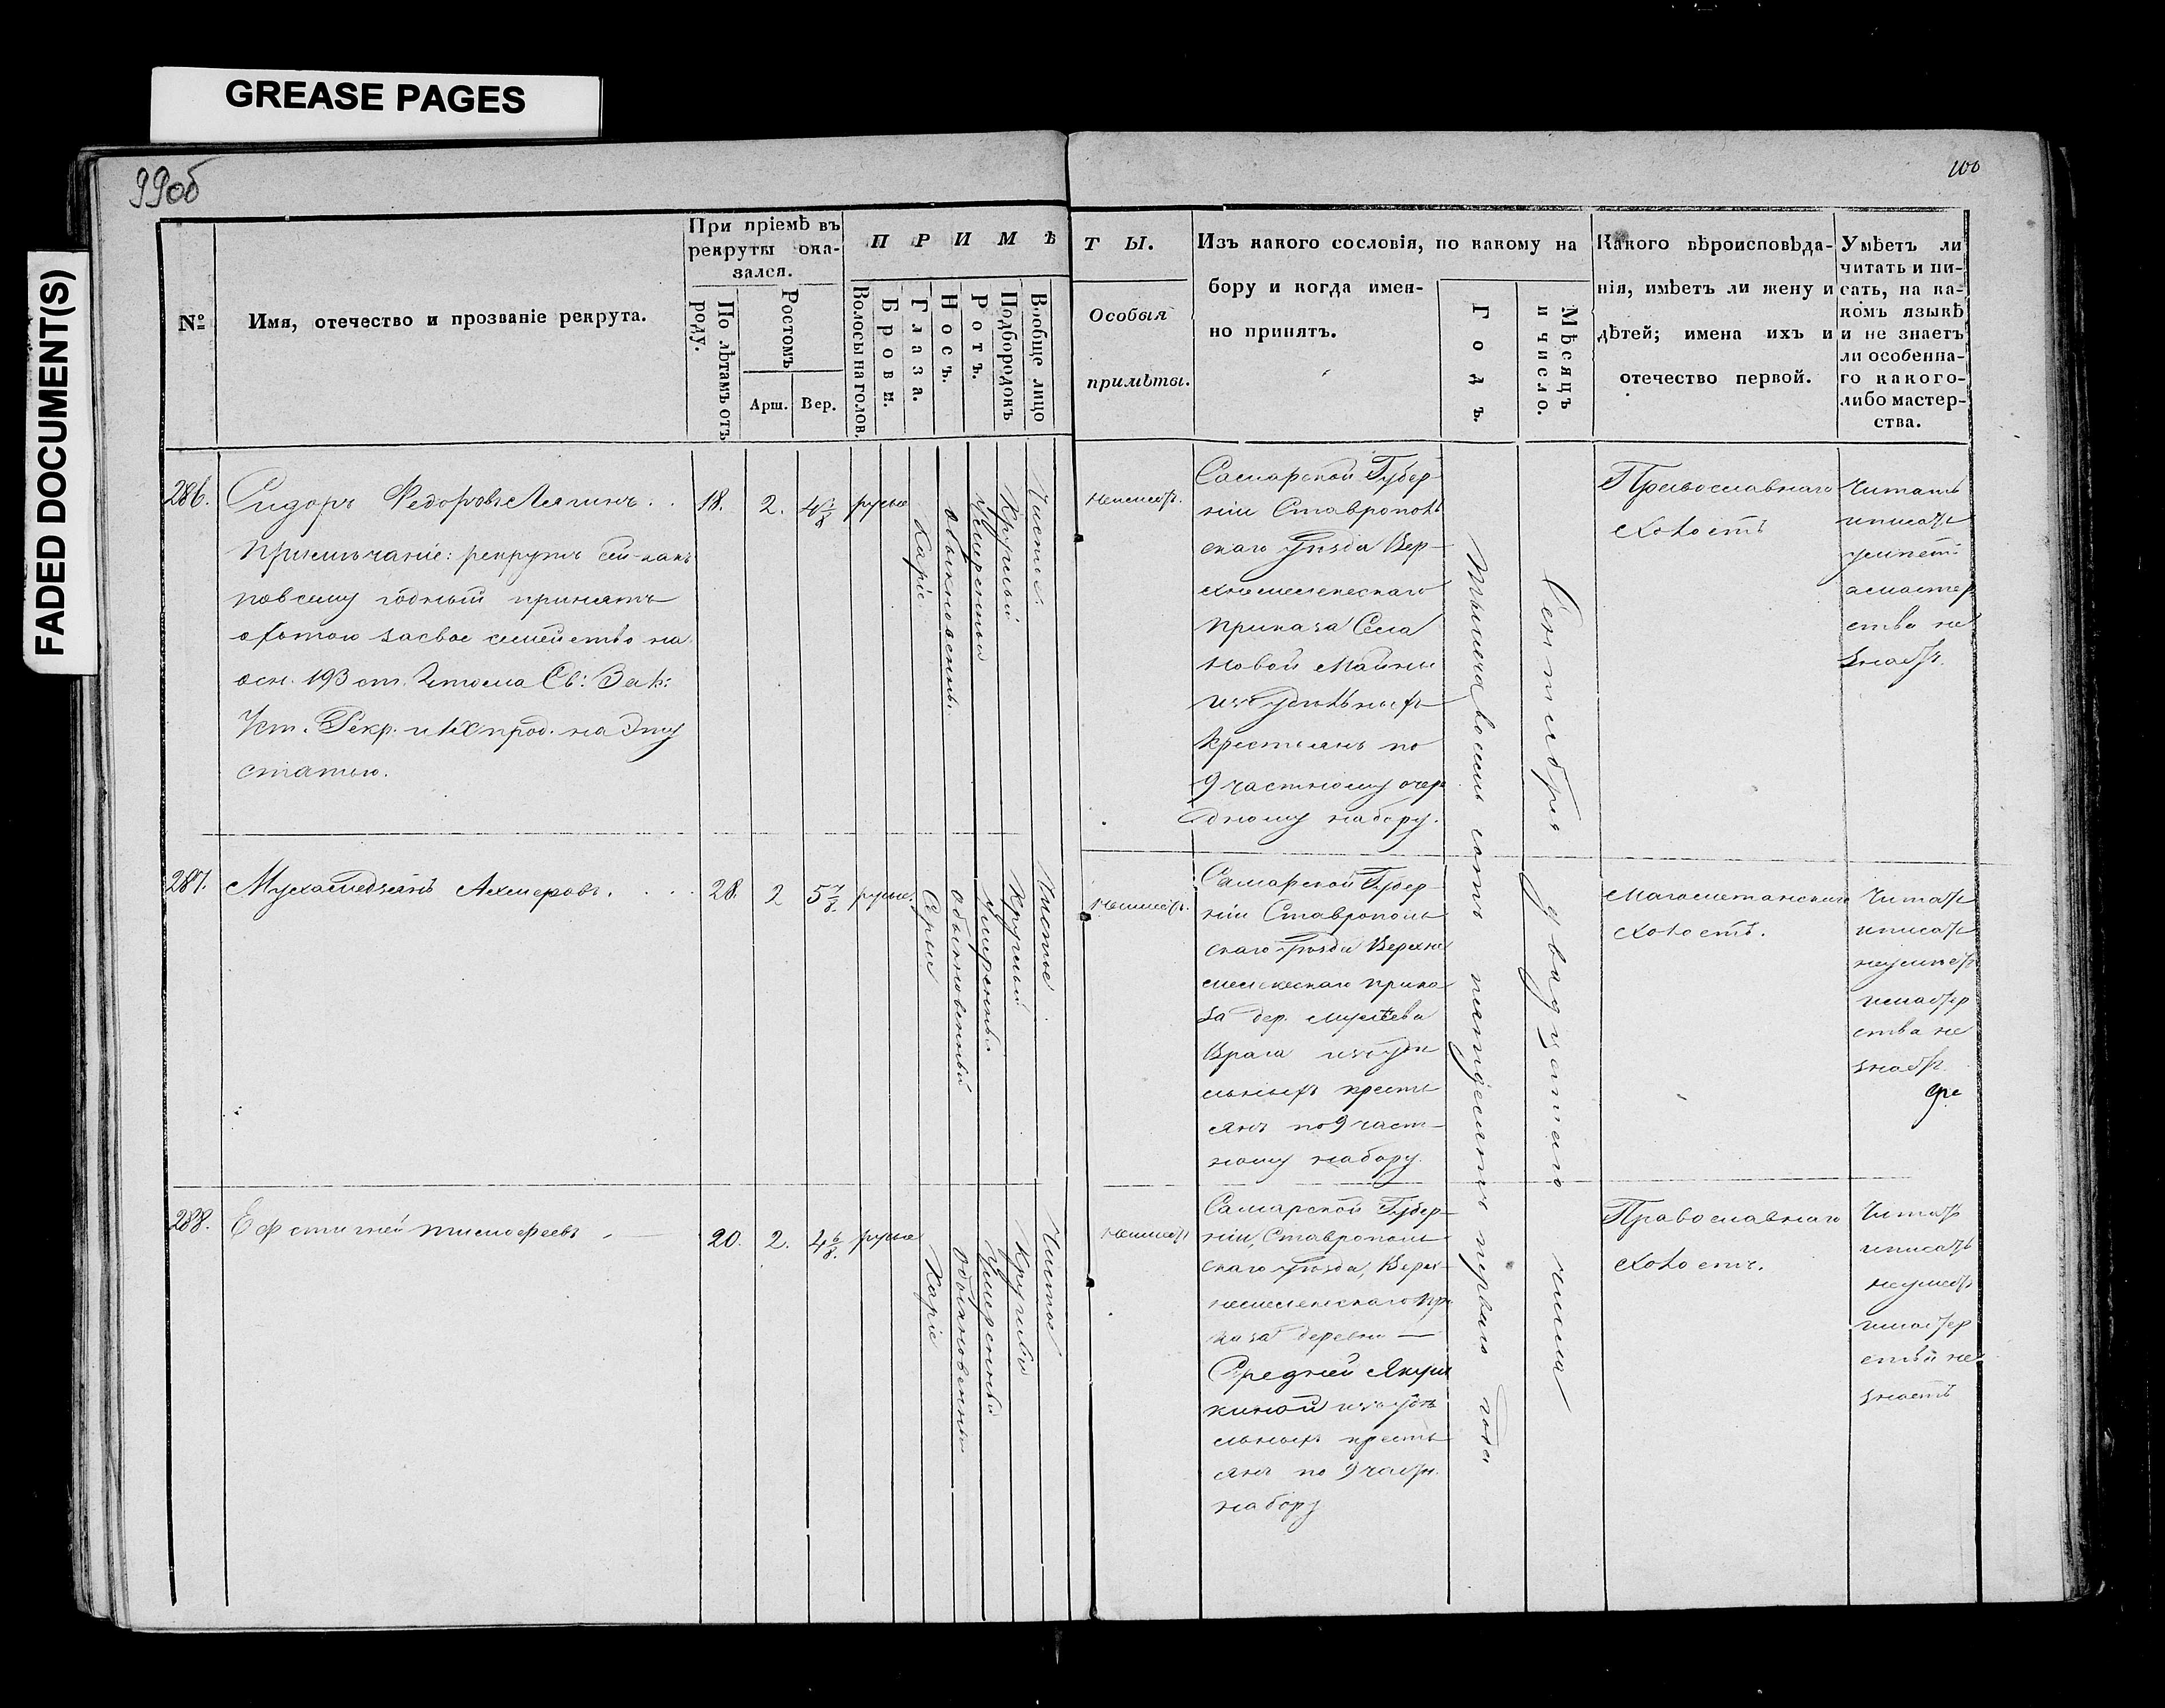 GREASE PAGES
FADED DOCUMENT(S)
99об
100
№
Имя, отечество и прозваніе рекрута.
При пріемѣ въ
рекруты ока-
зался.
По лѣтамъ отъ
роду.
Ростомъ
Арш.
Вер.
ПРИМѢ
Волосы на голов.
Брови.
Глаза.
Носъ.
Ротъ.
Подбородокъ
Вообще лицо
ТЫ.
Особыя
примѣты.
Изъ какого сословія, по какому на
бору и когда имен-
но принятъ.
Годъ.
Мѣсяцъ
и число.
Какого вѣроисповѣда-
нія, имѣетъ ли жену и
дѣтей; имена ихъ и
отечество первой.
Умѣетъ ли
читать и пи-
сать, на ка-
комъ языкѣ
и не знаетъ
ли особенна-
го какого-
либо мастер-
ства.
286.
Сидоръ Федоровъ
Примѣчаніе: рекрутъ сей какъ
повсему годный принятъ
охотою засвое семейство на
осн. 193 ст. Св: Зак:
Уст. Рекр. и прод. на эту
статью.
18.
2.
4 6/8
русые
Каріе
обыкновенный
умѣренный
Круглый
Чистое
неимѣетъ.
Самарской Губер-
ніи Ставрополь
скаго уѣзда Вер-
хнемелекескаго
приказа Села
Новой Майны
изъ удѣльныхъ
крестьянъ по
9 частному очере
дному набору.
Тысяча восемь сотъ пятьдесятъ перваго года
Сентября двадцатаго числа
Православнаго
холостъ
Читать
иписать
умѣетъ
амастер
ства не
знаетъ.
287.
Мухаметзянъ Ахмеровъ.
28.
2
5 7/8.
русые.
Сѣрые
обыкновенный
умѣренный
Круглый
Чистое
неимѣетъ.
Самарской Губер-
ніи Ставрополь
скаго уѣзда Верхне
мелекескаго прика
за дер.
Врага изъ удѣ
льныхъ кресть
янъ по 9 част-
ному набору.
Магометанскаго
холостъ.
Читать
иписать
неумѣетъ
имастер
ства не
знаетъ.
288.
Ефстигней Тимофеевъ
20.
2.
4 6/8.
русые
Каріе
обыкновенный
умѣренный
Круглый
Чистое
неимѣетъ
Самарской Губер-
ніи, Ставрополь
скаго уѣзда, Верх-
немелекескаго при
каза деревни —
Средней Якуш
киной изъ удѣ
льныхъ кресть
янъ по 9 частн.
набору
Православнаго
холостъ.
Читать
иписать
неумѣетъ
имастер
ства не
знаетъ